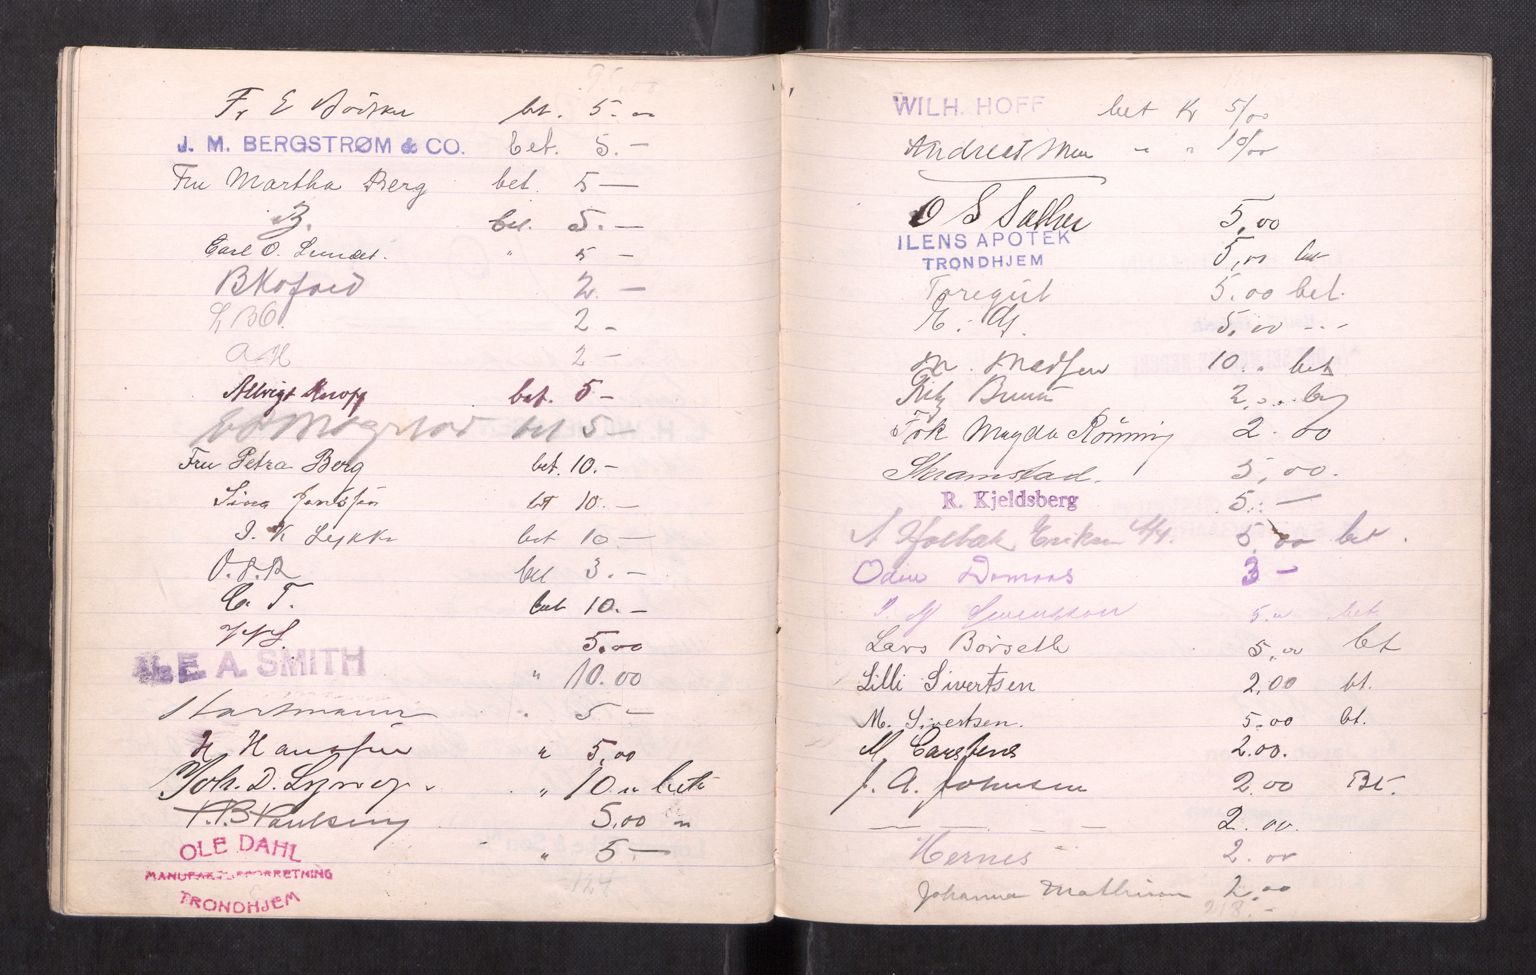 Fr E bet. 5.00
J. M. BERGSTRØM & CO. bet. 5.-
Fru Martha Berg bet. 5 —
B. bet. 5.-
Carl O. Lundt. " 5 -
B Kofoed 2. -
L B C. 2 -
A H 2 -
bet. 5 -
bet 5 -
Fru Petra Berg bet. 10.-
Sina Jenssen bet 10.-
J. K Lykke bet 10 -
O. F. R bet 3. -
C. T. bet 10. -
5.00
E. A. SMITH " 10.00
Hartmann " 5 -
H Hanssen " 5.00
Joh. D. " 10 " bet
Paulsen 5,00 "
OLE DAHL
MANUFAKTURFORRETNING
TRONDHJEM
" 5.-
124
WILH. HOFF bet Kr 5/00
Andreas Moe " " 10/00
O S Sæther 5,00
ILENS APOTEK
TRONDHJEM 5,00 bet
Toregut 5.00 bet.
5,00 - -
M. Madsen 10. " bet
Fritz Bruun 2,00 bet
Frk Magda Rönning 2.00
Skramstad. 5,00.
R. Kjeldsberg 5.-
A Holbæk Eriksen A/S. 5,00 bet.
Odin Domaas 3 -
bet
Lars Börseth 5,00 bet
Lilli Sivertsen 2,00 bt.
M. Sivertsen. 5,00 bt.
M Carstens 2.00.
J. A. Johnsen 2.00 Bt.
— — — 2.00.
Hernes 2.00
Johanna Mathisen 2,00
218.-